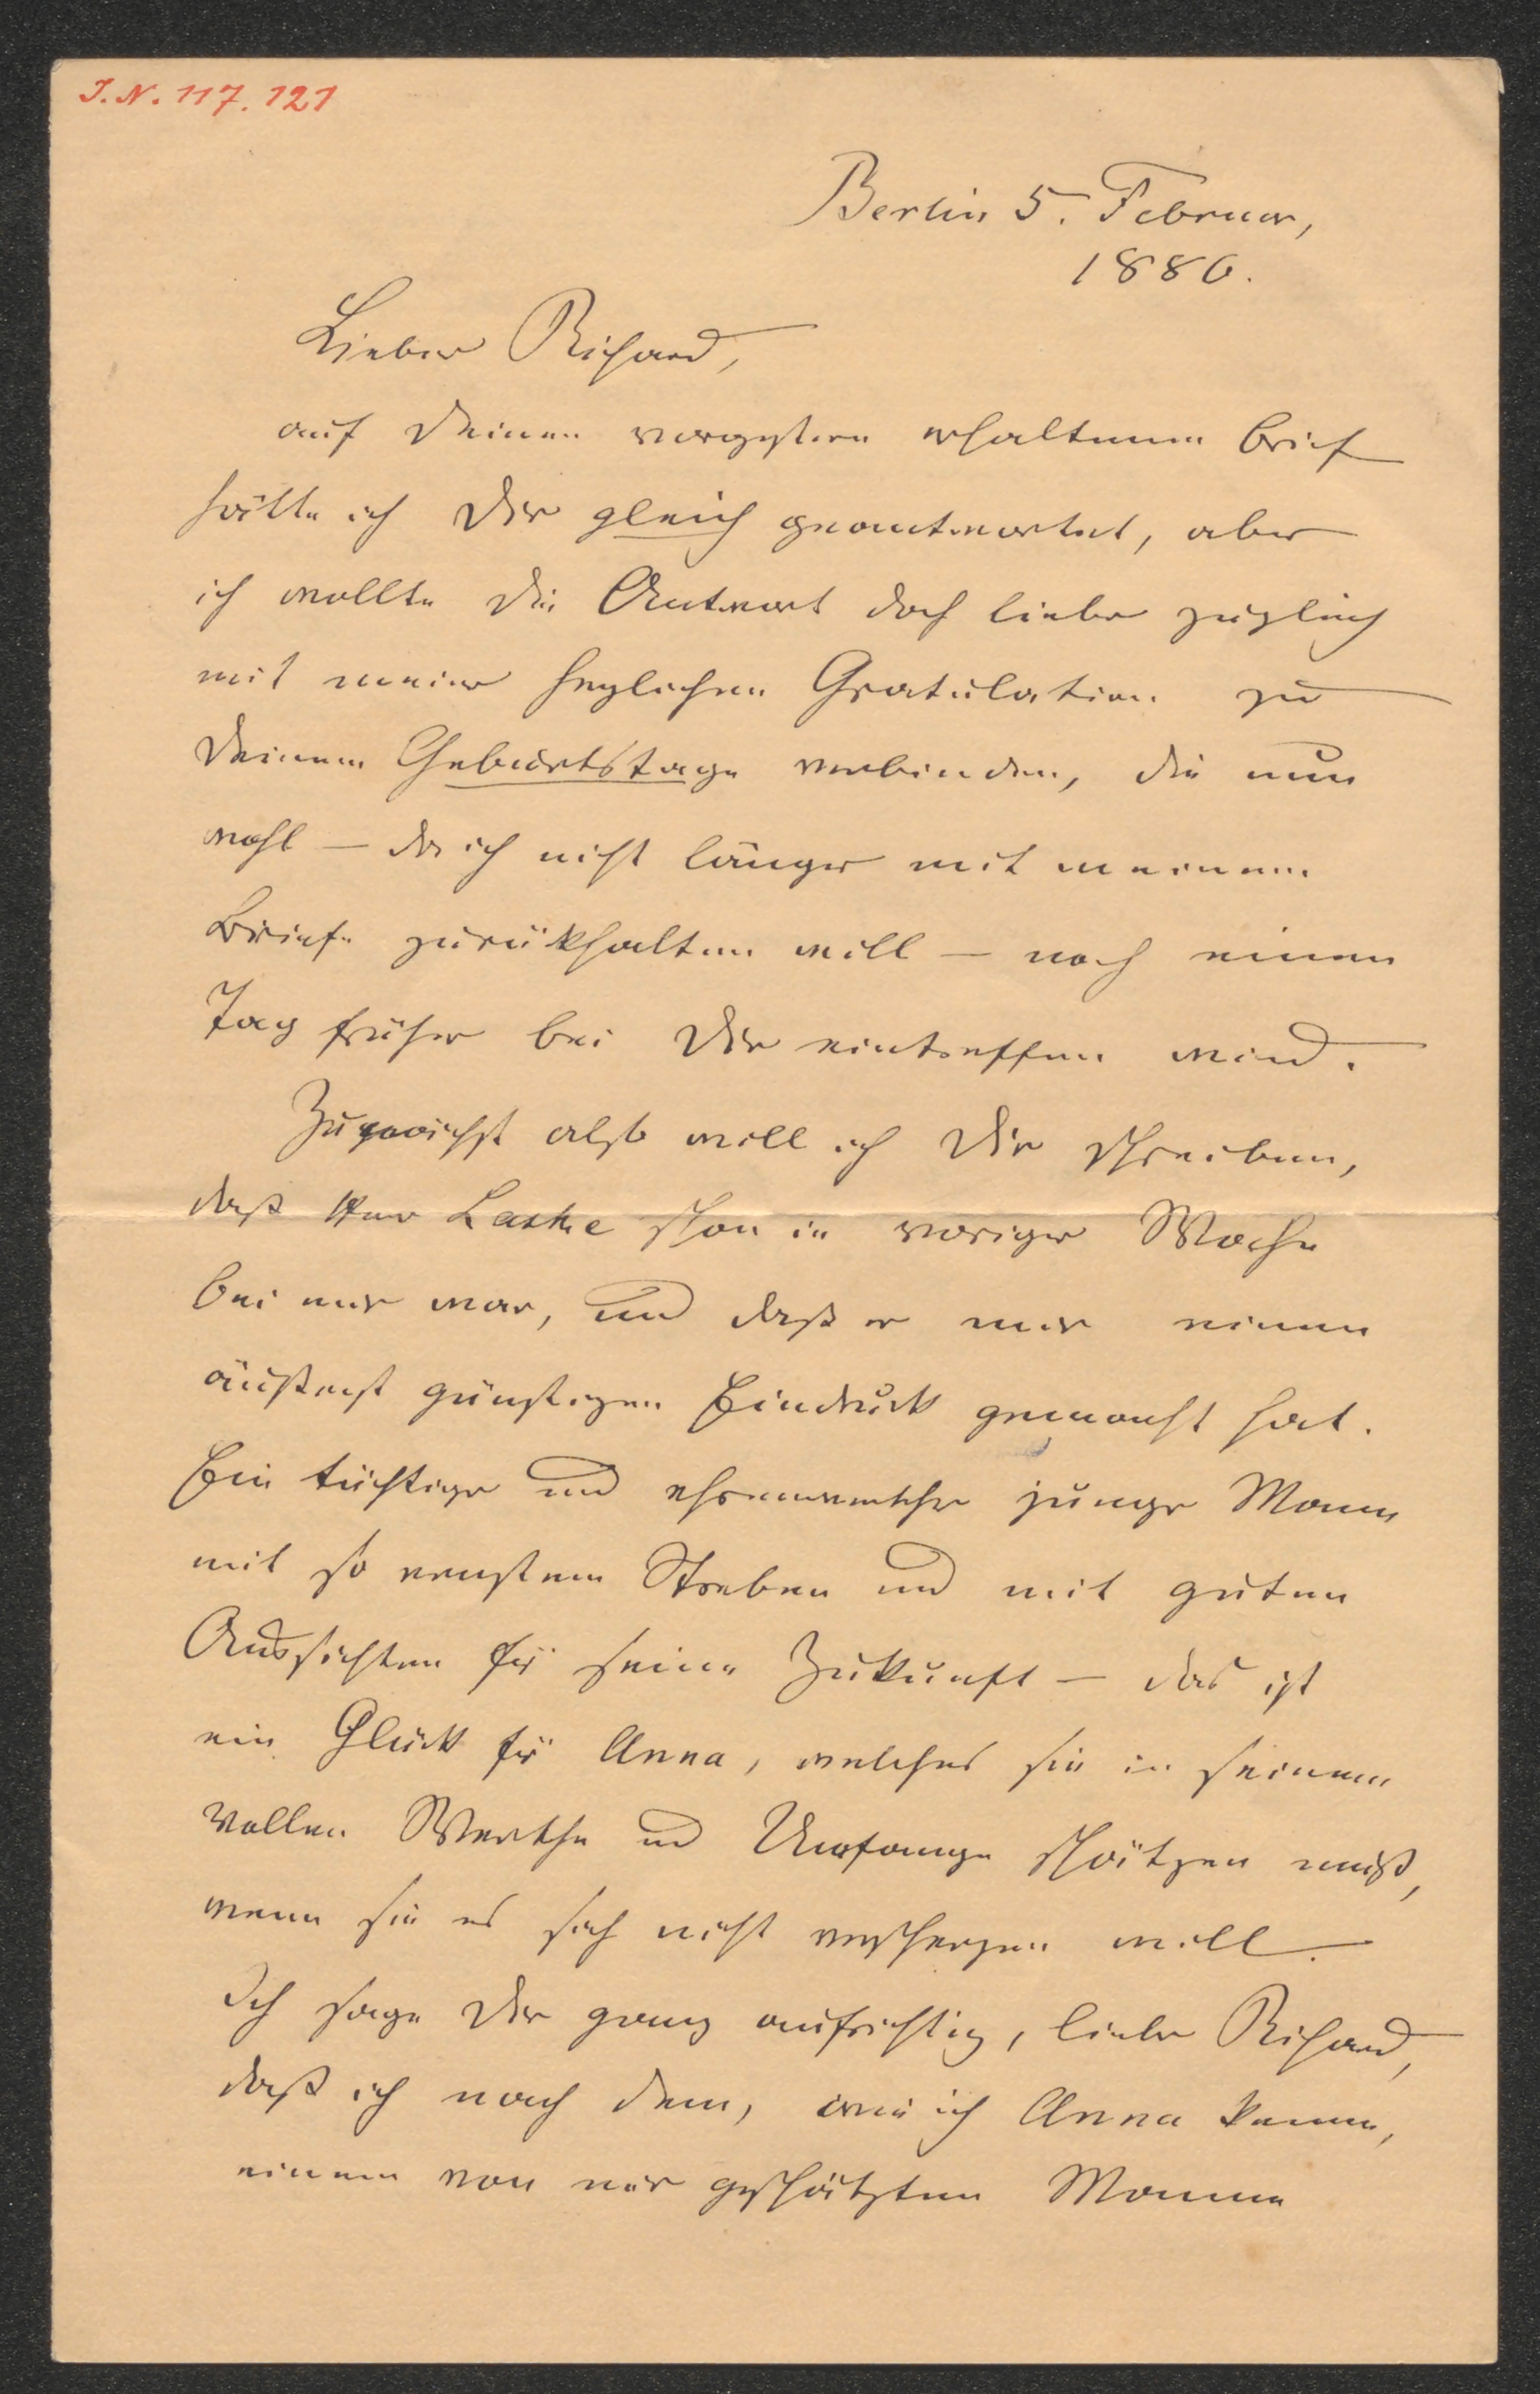 J.N. 117.121
Berlin 5. Februar,
1886.
Lieber Richard,
auf Deinen vorgestern erhaltenen Brief
hätte ich Dir gleich geantwortet, aber
ich wollte die Antwort doch lieber zugleich
mit meiner herzlichen Gratulation zu
Deinem Geburtstage verbinden, die nun
wohl – da ich nicht länger mit meinem
Briefe zurückhalten will – noch einen
Tag früher bei Dir eintreffen wird.
Zunächst also will ich Dir schreiben,
daß Herr Laske schon in voriger Woche
bei mir war, und daß er mir einen
äußerst günstigen Eindruck gemacht hat.
Ein tüchtiger und ehrenwerther junger Mann
mit so ernstem Streben und mit guten
Aussichten für seine Zukunft – das ist
ein Glück für Anna, welches sie in seinem
vollen Werthe und Umfange schätzen muß,
wenn sie es sich nicht verscherzen will.
Ich sage Dir ganz aufrichtig, lieber Richard,
daß ich nach dem, wie ich Anna kenne,
einem von mir geschätzten Manne